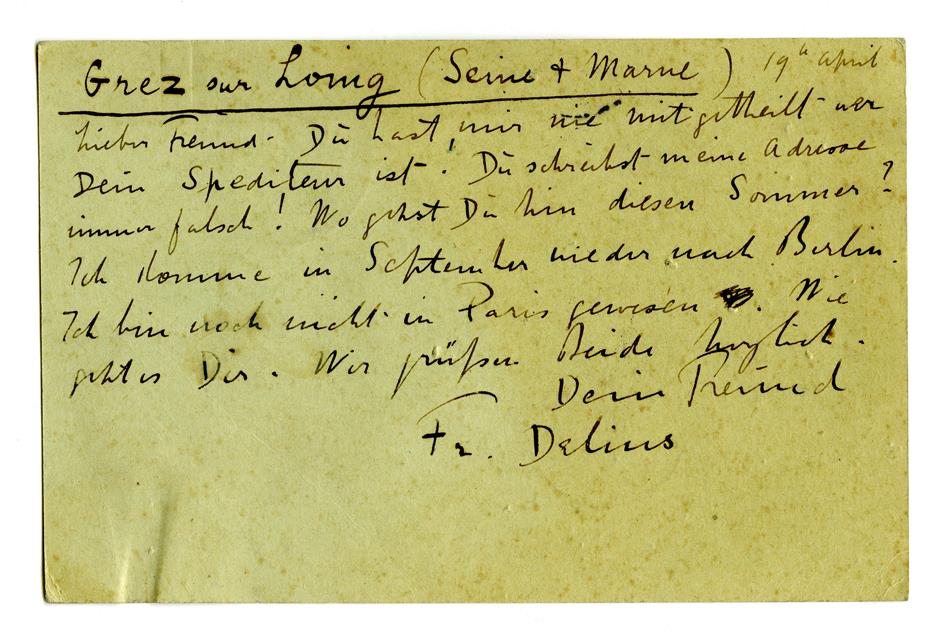 Grez sur Loing (Seine & Marne) 19th april
Lieber Freund. Du hast mir nie mitgetheilt wer
Dein Spediteur ist! Du schreibst meine Adresse
immer falsch! Wo gehst Du hin diesen Sommer?
Ich komme in September wieder nach Berlin.
Ich bin noch nicht in Paris gewesen. Wie
geht es Dir. Wir grüssen Beide herzlich.
Dein Freund
Fr. Delius